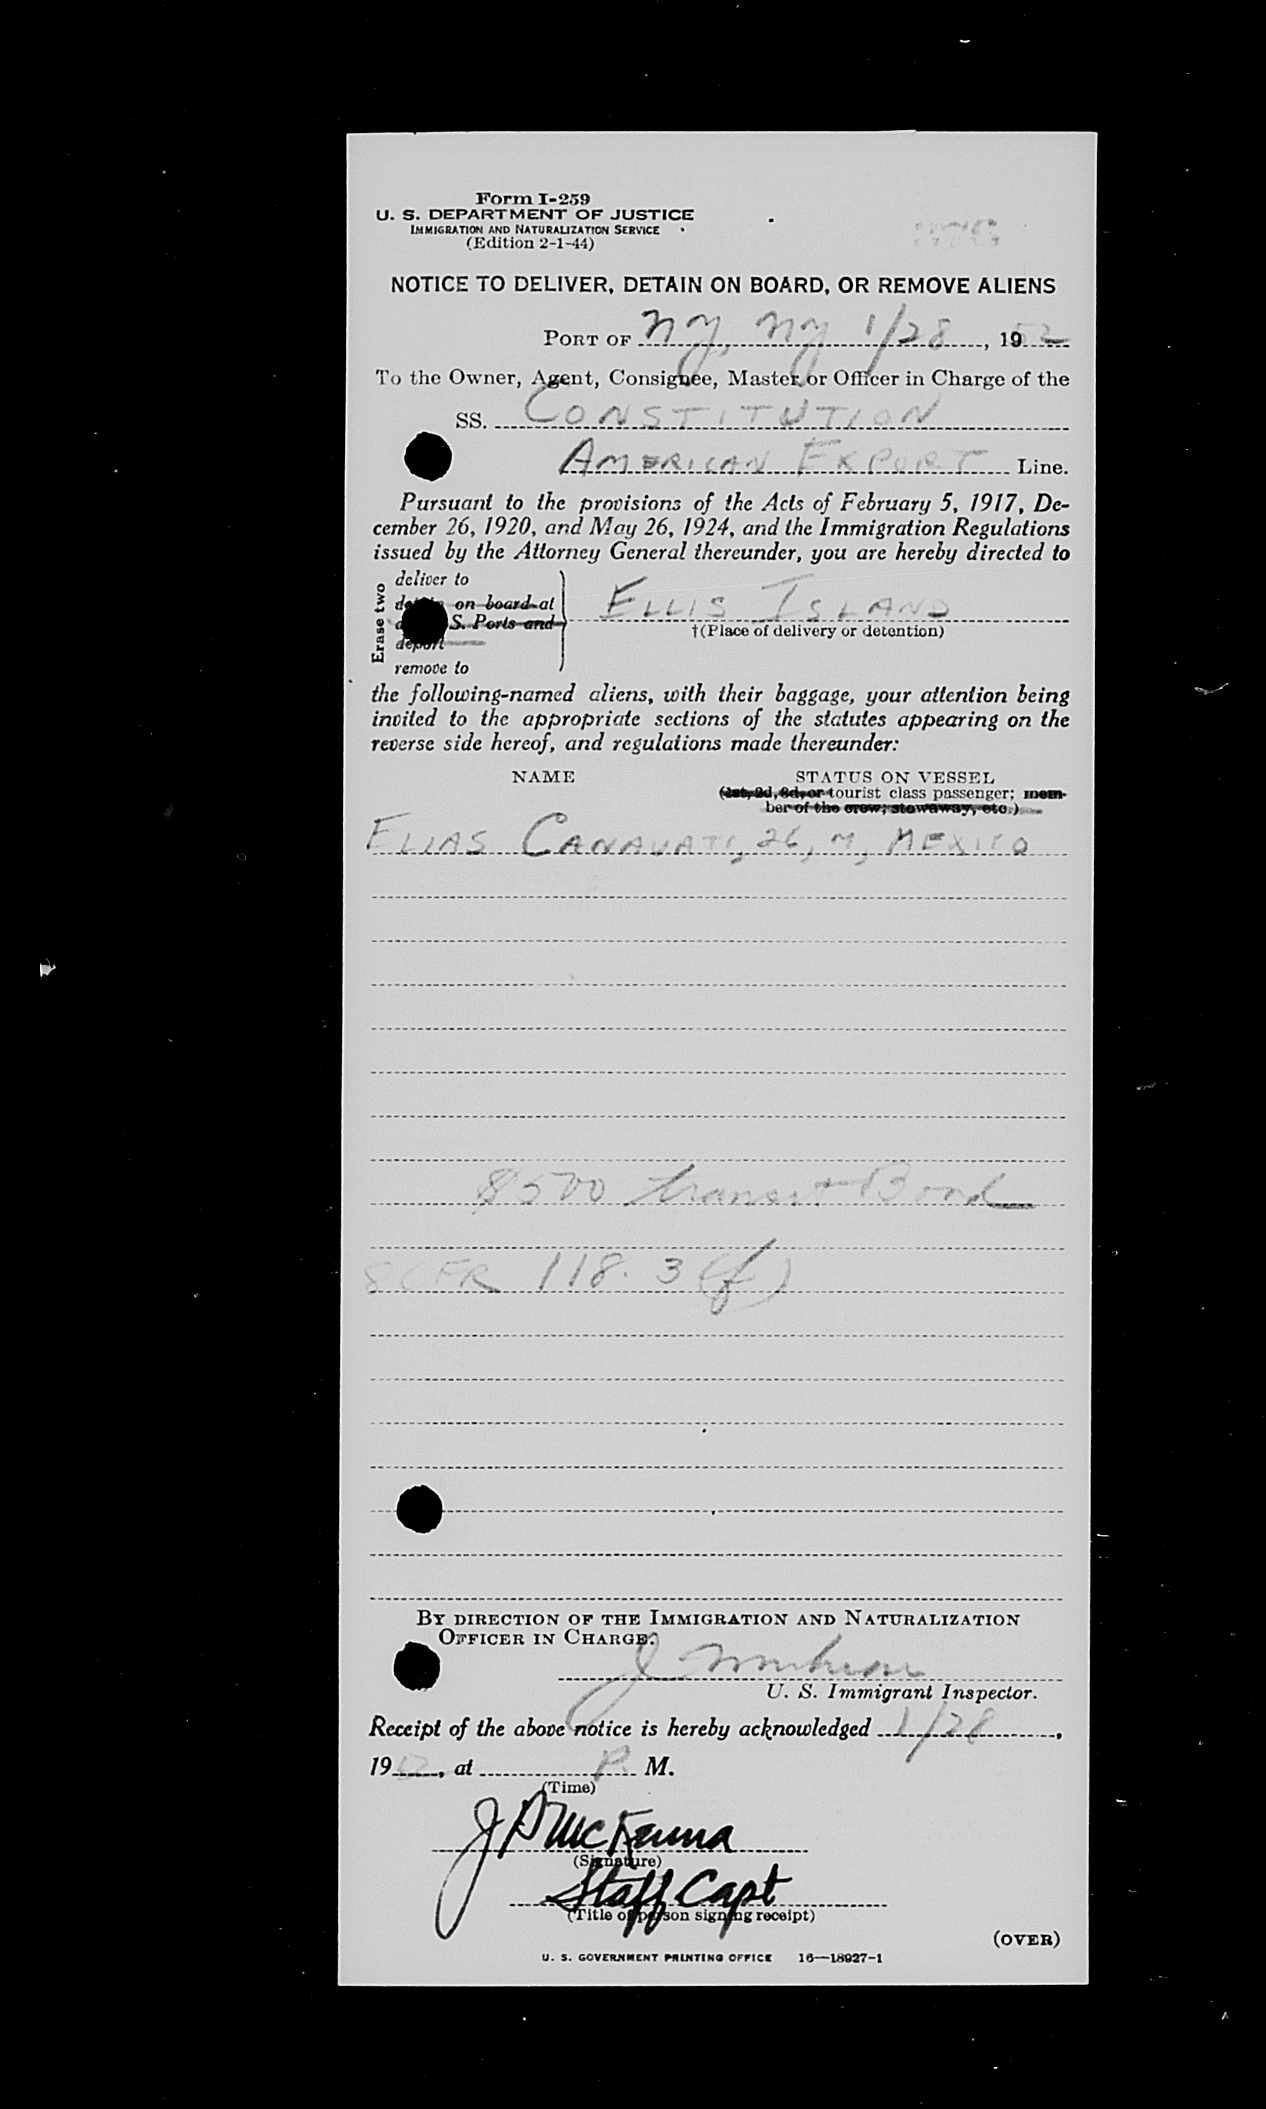 Form I-259
U. S. DEPARTMENT OF JUSTICE
IMMIGRATION AND NATURALIZATION SERVICE
(Edition 2-1-44)
NOTICE TO DELIVER, DETAIN ON BOARD, OR REMOVE ALIENS
PORT OF NY, NY 1/28, 1952
To the Owner, Agent, Consignee, Master or Officer in Charge of the
SS. CONSTITUTION
AMERICAN EXPORT Line.
Pursuant to the provisions of the Acts of February 5, 1917, De-
cember 26, 1920, and May 26, 1924, and the Immigration Regulations
issued by the Attorney General thereunder, you are hereby directed to
Erase two
deliver to
on board at
S. Ports and
deport
remove to
ELLIS ISLAND
†(Place of delivery or detention)
the following-named aliens, with their baggage, your attention being
invited to the appropriate sections of the statutes appearing on the
reverse side hereof, and regulations made thereunder:
NAME STATUS ON VESSEL
(1st, 2d, 3d, or tourist class passenger; mem-
ber of the crew; stowaway, etc.)
ELIAS CANAVATI, 26, M, MEXICO
$500 transit Bond
8 CFR 118.3 (f)
BY DIRECTION OF THE IMMIGRATION AND NATURALIZATION
OFFICER IN CHARGE:
J
U. S. Immigrant Inspector.
Receipt of the above notice is hereby acknowledged 1/28,
19, at P. M.
(Time)
J P McKenna
(Signature)
Staff Capt
(Title of person signing receipt)
(OVER)
U. S. GOVERNMENT PRINTING OFFICE 16—18927-1